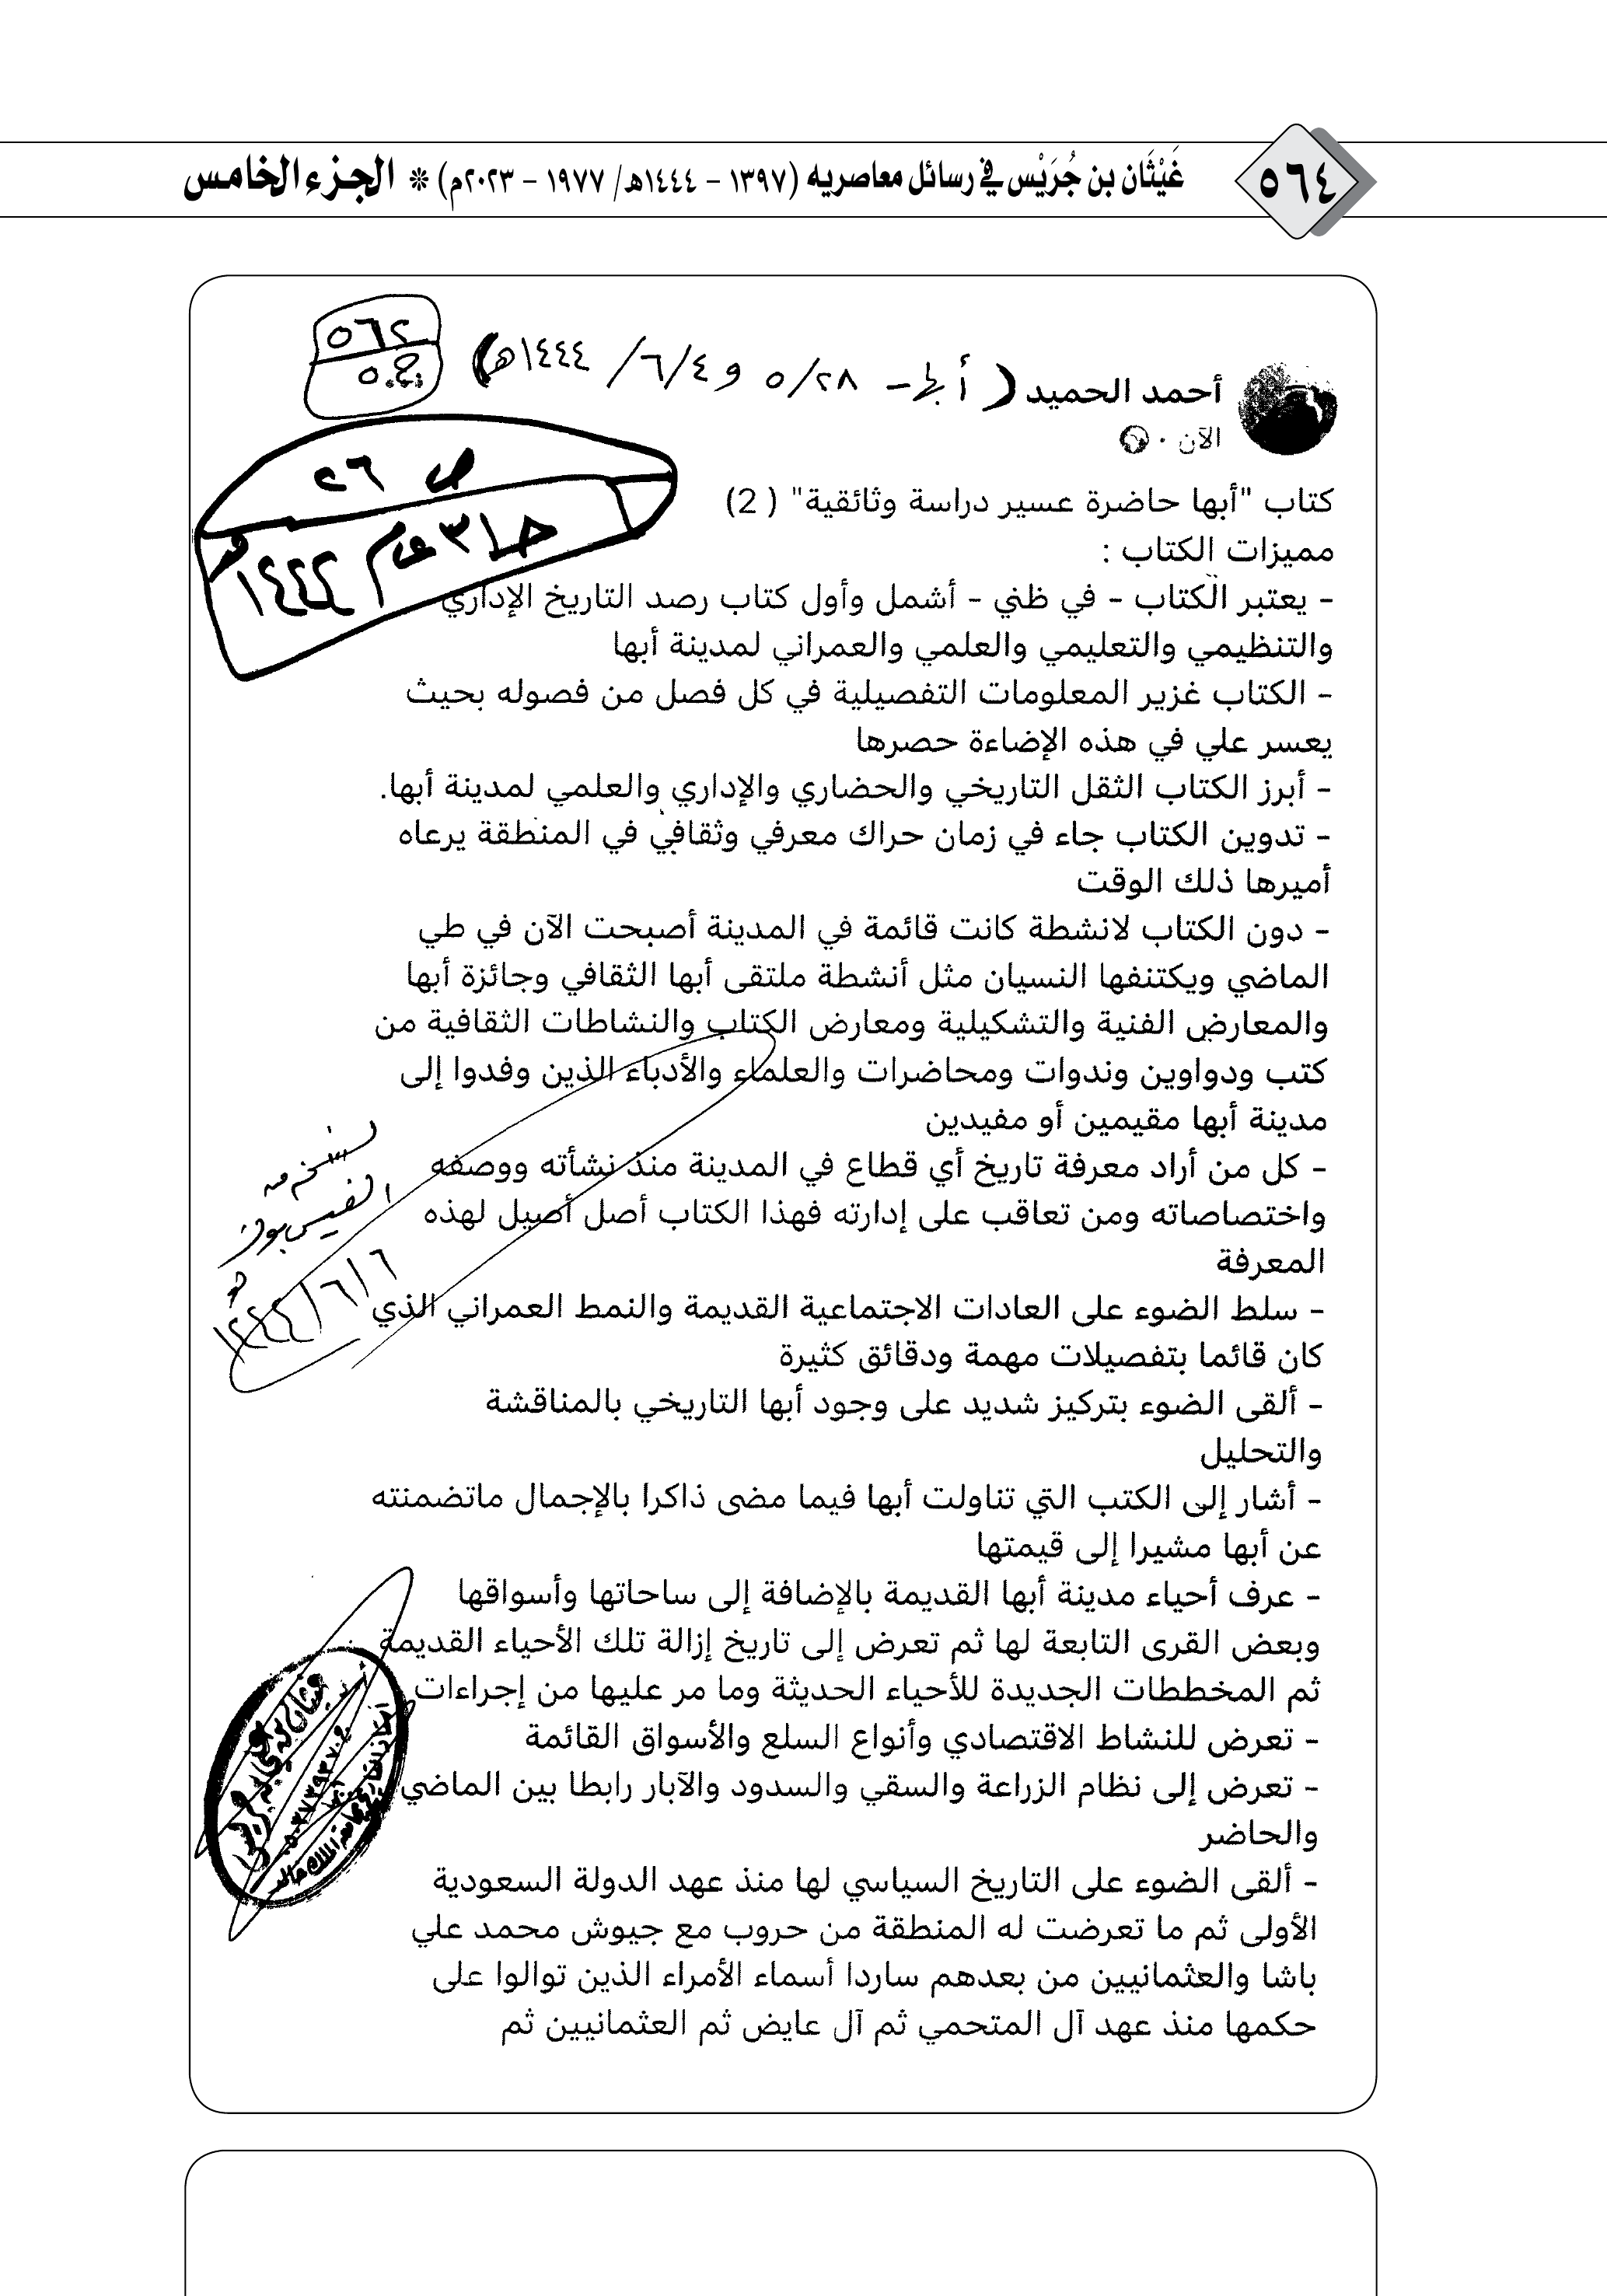 ٥٦٤
غَيْثَان بن جُرَيْس في رسائل معاصريه (١٣٩٧ - ١٤٤٤هـ/ ١٩٧٧ - ٢٠٢٣م) * الجزء الخامس
٥٦٢
أحمد الحميد ( أبها - ٥/٢٨ و ٦/٤/ ١٤٤٤هـ)
الآن ·
ص ٢٦
كتاب "أبها حاضرة عسير دراسة وثائقية" ( 2)
مميزات الكتاب :
- يعتبر الكتاب - في ظني - أشمل وأول كتاب رصد التاريخ الإداري
والتنظيمي والتعليمي والعلمي والعمراني لمدينة أبها
- الكتاب غزير المعلومات التفصيلية في كل فصل من فصوله بحيث
يعسر علي في هذه الإضاءة حصرها
- أبرز الكتاب الثقل التاريخي والحضاري والإداري والعلمي لمدينة أبها.
- تدوين الكتاب جاء في زمان حراك معرفي وثقافي في المنطقة يرعاه
أميرها ذلك الوقت
- دون الكتاب لانشطة كانت قائمة في المدينة أصبحت الآن في طي
الماضي ويكتنفها النسيان مثل أنشطة ملتقى أبها الثقافي وجائزة أبها
والمعارض الفنية والتشكيلية ومعارض الكتاب والنشاطات الثقافية من
كتب ودواوين وندوات ومحاضرات والعلماء والأدباء الذين وفدوا إلى
مدينة أبها مقيمين أو مفيدين
- كل من أراد معرفة تاريخ أي قطاع في المدينة منذ نشأته ووصفه
واختصاصاته ومن تعاقب على إدارته فهذا الكتاب أصل أصيل لهذه
المعرفة
- سلط الضوء على العادات الاجتماعية القديمة والنمط العمراني الذي
كان قائما بتفصيلات مهمة ودقائق كثيرة
- ألقى الضوء بتركيز شديد على وجود أبها التاريخي بالمناقشة
والتحليل
- أشار إلى الكتب التي تناولت أبها فيما مضى ذاكرا بالإجمال ماتضمنته
عن أبها مشيرا إلى قيمتها
- عرف أحياء مدينة أبها القديمة بالإضافة إلى ساحاتها وأسواقها
وبعض القرى التابعة لها ثم تعرض إلى تاريخ إزالة تلك الأحياء القديمة
ثم المخططات الجديدة للأحياء الحديثة وما مر عليها من إجراءات
- تعرض للنشاط الاقتصادي وأنواع السلع والأسواق القائمة
- تعرض إلى نظام الزراعة والسقي والسدود والآبار رابطا بين الماضي
والحاضر
- ألقى الضوء على التاريخ السياسي لها منذ عهد الدولة السعودية
الأولى ثم ما تعرضت له المنطقة من حروب مع جيوش محمد علي
باشا والعثمانيين من بعدهم ساردا أسماء الأمراء الذين توالوا على
حكمها منذ عهد آل المتحمي ثم آل عايض ثم العثمانيين ثم